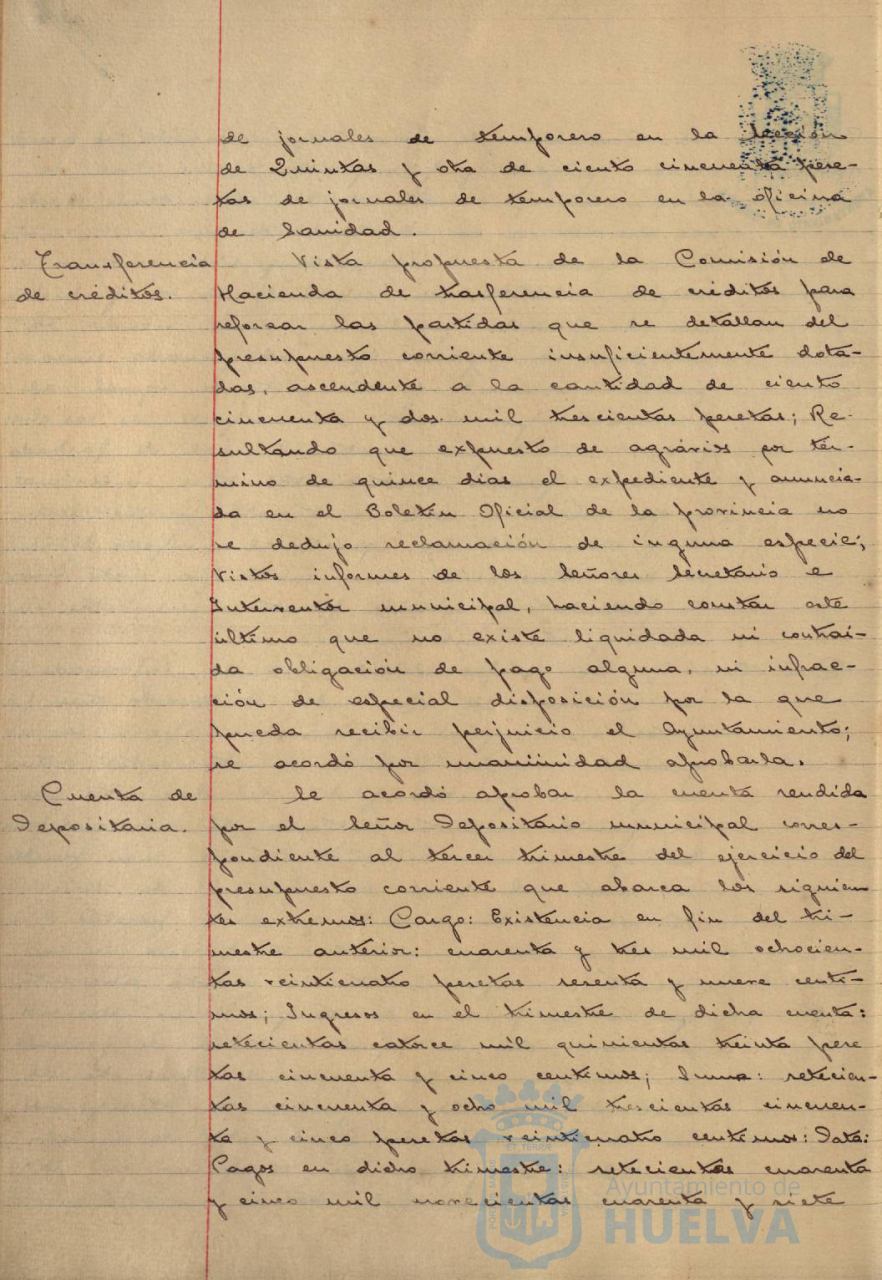 de jornales de temporero en la Sección
de Quintas y otra de ciento cincuenta pese-
tas de jornales de temporero en la oficina
de Sanidad.
Transferencia
de créditos.
Vista propuesta de la Comisión de
Hacienda de trasferencia de créditos para
reforzar las partidas que se detallan del
presupuesto corriente insuficientemente dota-
das, ascendente a la cantidad de ciento
cincuenta y dos mil trescientas pesetas; Re-
sultando que expuesto de agravios por tér-
mino de quince dias el expediente y anuncia-
da en el Boletín Oficial de la provincia no
se dedujo reclamación de inguna especie;
Vistos informes de los Señores Secretario e
Interventor municipal, haciendo constar este
último que no existe liquidada ni contraí-
da obligación de pago alguna, ni infrac-
ción de especial disposición por la que
pueda recibir perjuicio el Ayuntamiento;
se acordó por unanimidad aprobarla.
Cuenta de
Depositaria.
Se acordó aprobar la cuenta rendida
por el Señor Depositario municipal corres-
pondiente al tercer trimestre del ejercicio del
presupuesto corriente que abarca los siguien
tes extremos: Cargo: Existencia en fin del tri-
mestre anterior: cuarenta y tres mil ochocien-
tas veinticuatro pesetas sesenta y nueve centi-
mos; Ingresos en el trimestre de dicha cuenta:
setecientas catorce mil quinientas treinta pese
tas cincuenta y cinco centimos; Suma: setecien-
tas cincuenta y ocho mil trescientas cincuen-
ta y cinco pesetas veinticuatro centimos: Data:
Pagos en dicho trimestre: setecientas cuarenta
y cinco mil novecientas cuarenta y siete
Ayuntamiento de
HUELVA